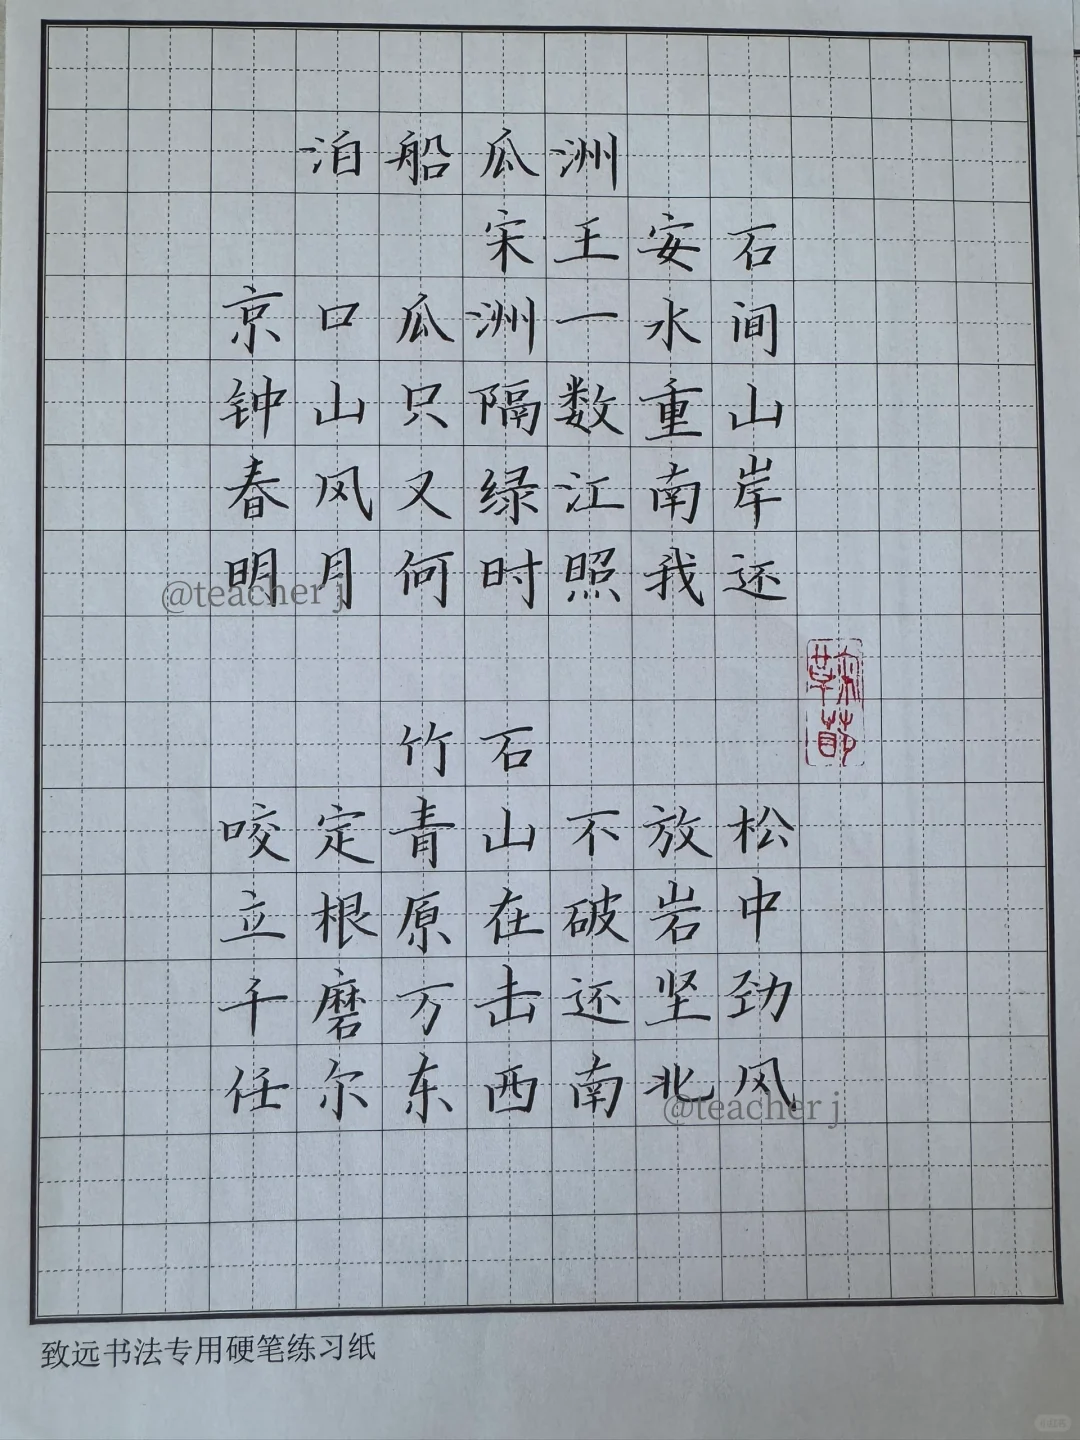 泊船瓜洲
宋 王安石
京口瓜洲一水间
钟山只隔数重山
春风又绿江南岸
明月何时照我还
@teacher j
竹石
咬定青山不放松
立根原在破岩中
千磨万击还坚劲
任尔东西南北风
@teacher j
致远书法专用硬笔练习纸
小红书